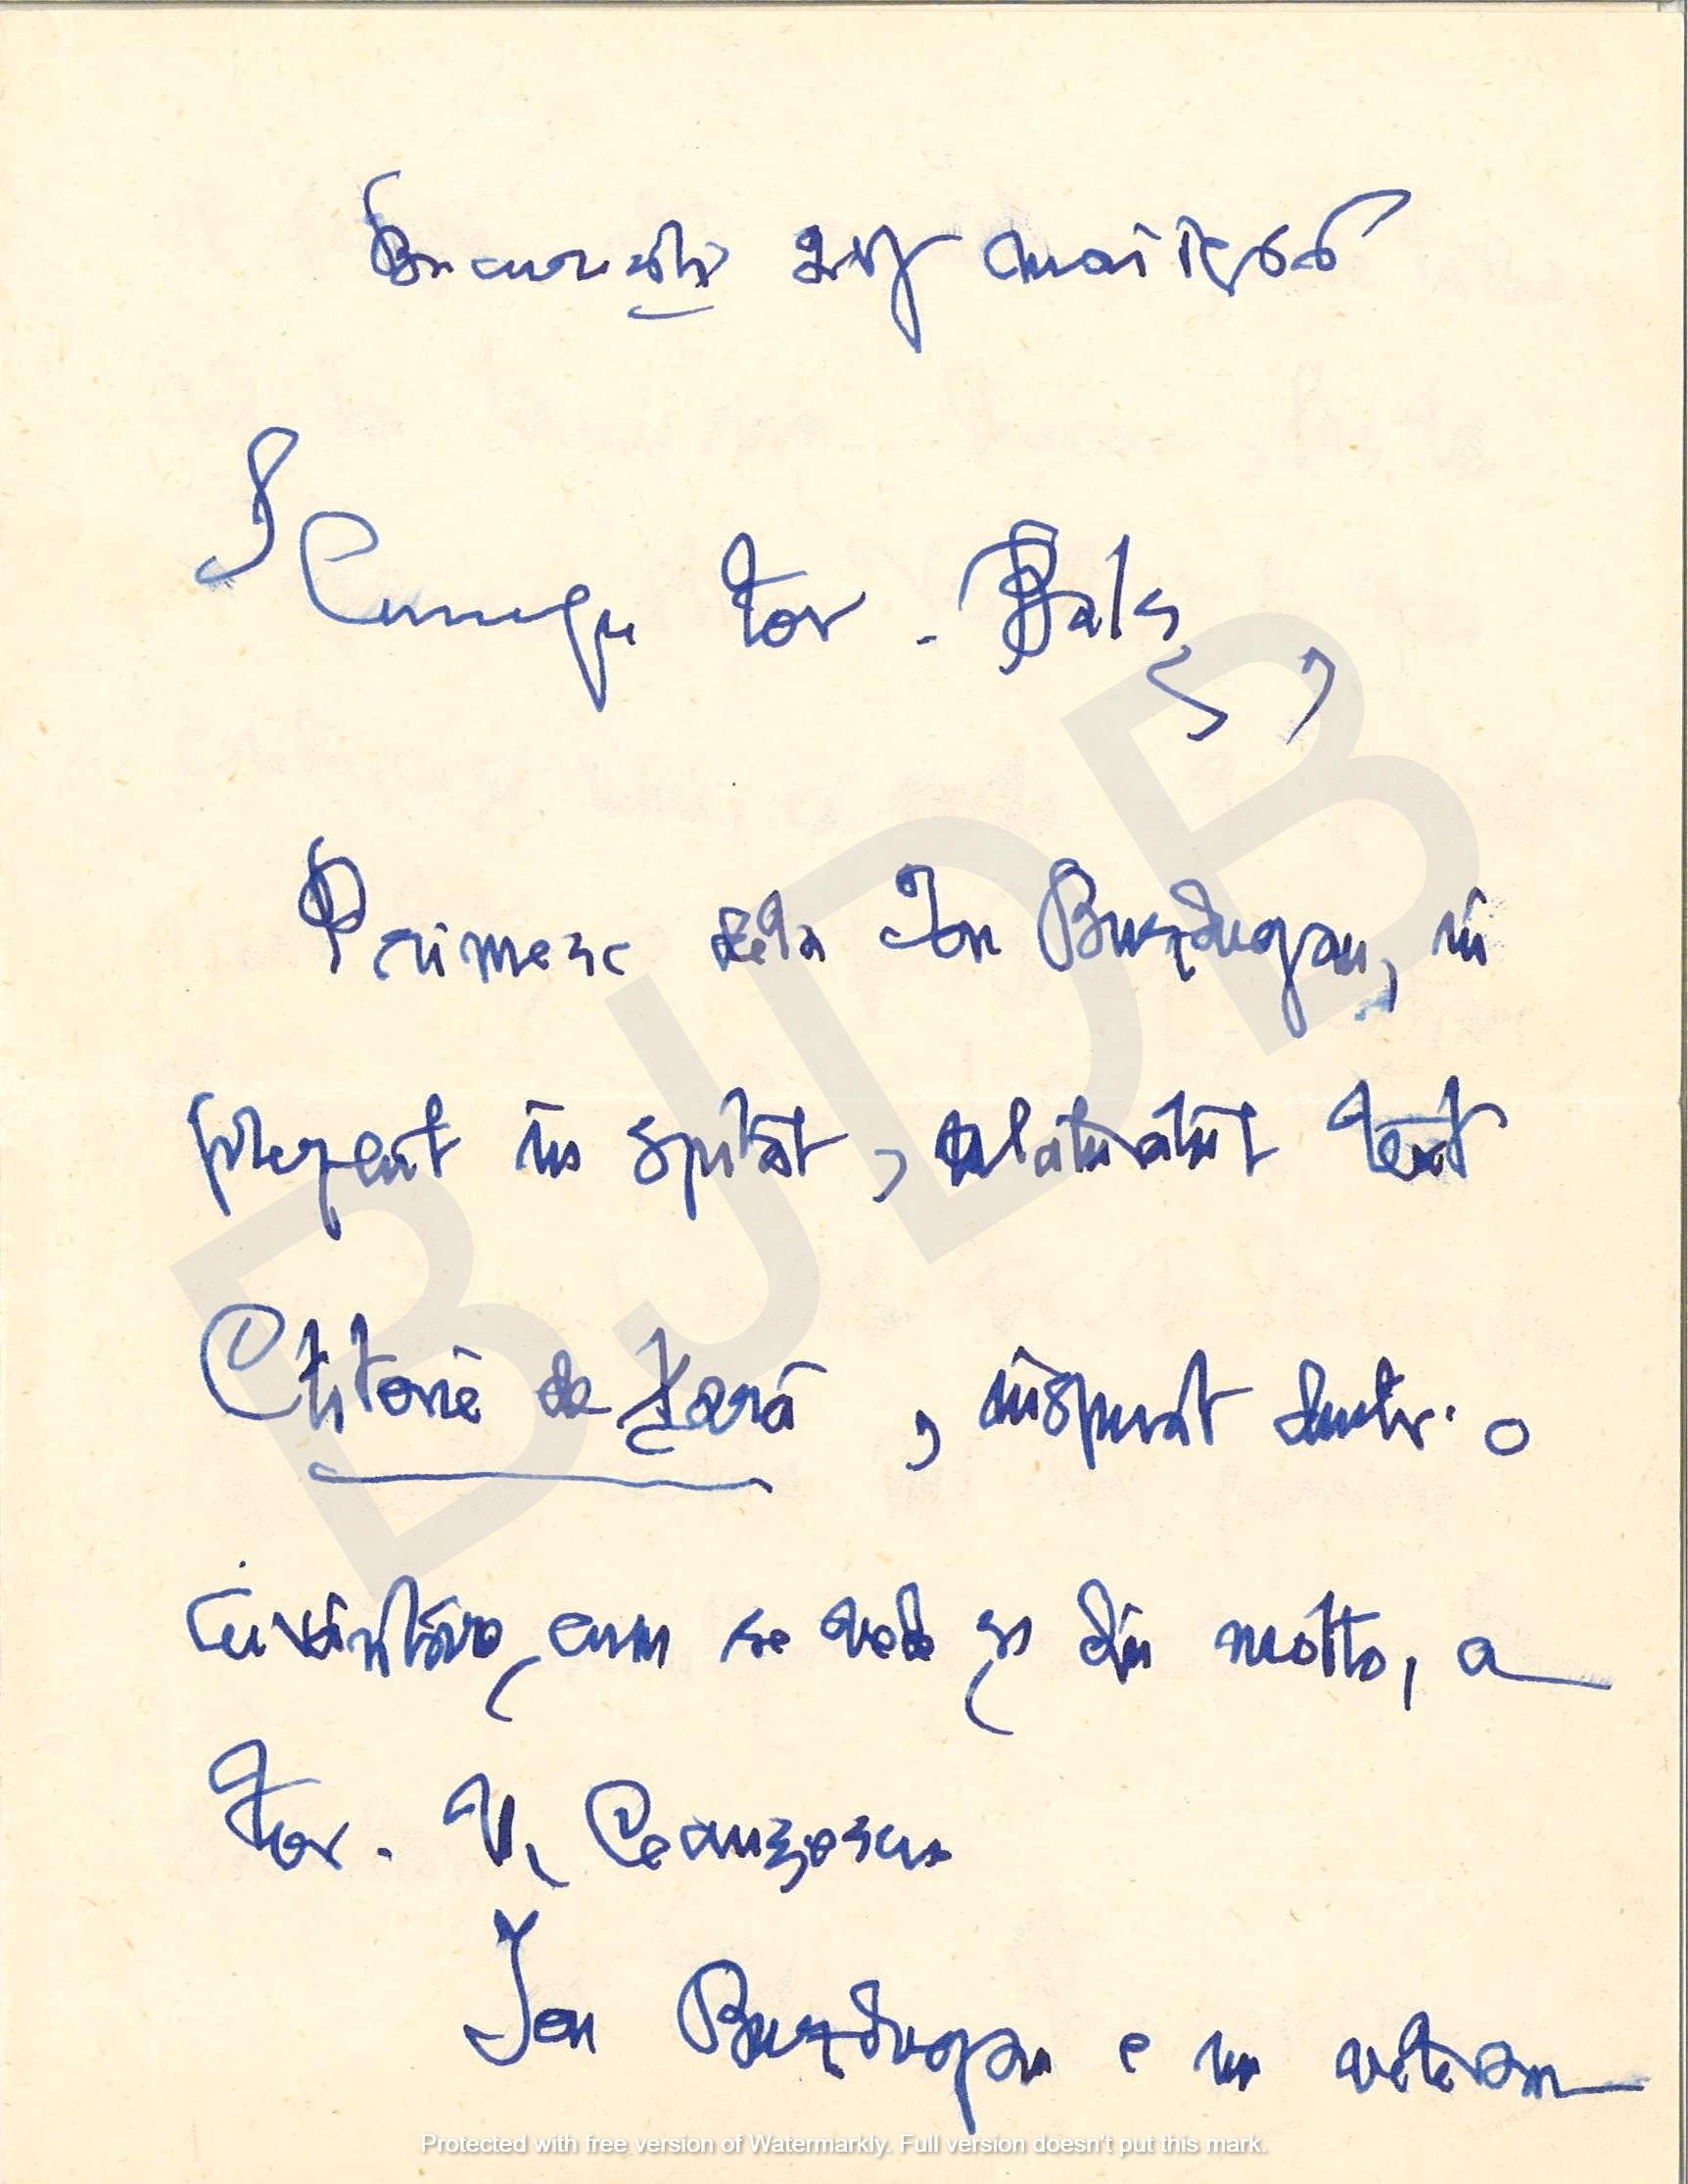 București 27 mai 1966
Scumpe tov. Balș,
Primesc dela Ion Buzdugan, în
prezent în spital, alăturatul text
Ctitorie de țară, inspirat dintr-o
cuvântare, cum se vede și din motto, a
tov. N. Ceaușescu
Ion Buzdugan e un veteran
BJDB
Protected with free version of Watermarkly. Full version doesn't put this mark.